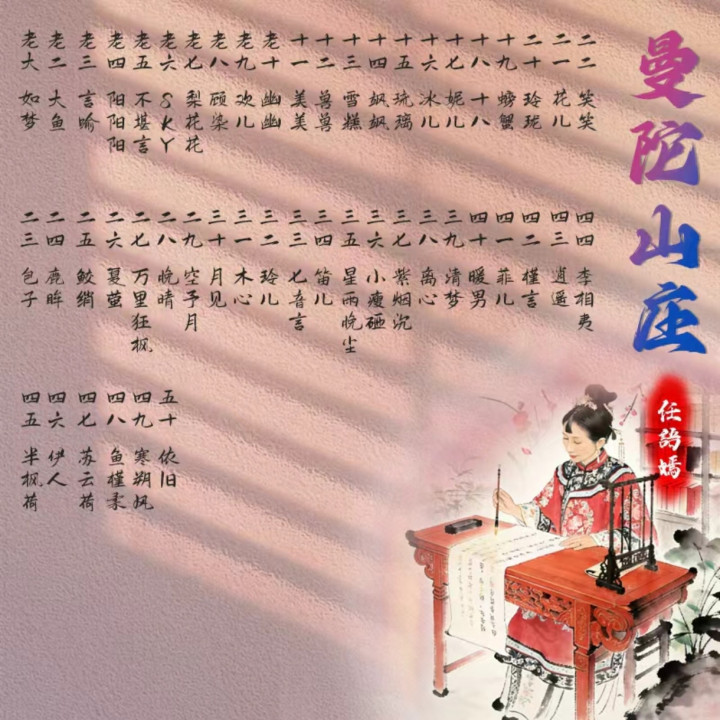 曼陀山庄
任诗嫣
老大 如梦
老二 大鱼
老三 言喻
老四 阳阳阳
老五 不堪言
老六 SKY
老七 梨花
老八 顾染
老九 欢儿
老十 幽幽
十一 美美
十二 兽兽
十三 雪糕
十四 飒飒
十五 琉璃
十六 冰儿
十七 妮儿
十八 十八
十九 螃蟹
二十 玲珑
二一 花儿
二二 笑笑
二三 包子
二四 鹿眸
二五 鲛绡
二六 夏萤
二七 万里狂枫
二八 晚晴
二九 空予月
三十 月见
三一 木心
三二 玲儿
三三 七音言
三四 笛儿
三五 星雨晚尘
三六 小瘦砸
三七 紫烟沉
三八 离心
三九 清梦
四十 暖男
四一 菲儿
四二 槿言
四三 逍遥
四四 李相夷
四五 半枫荷
四六 伊人
四七 苏云荷
四八 鱼槿柔
四九 寒朔风
五十 依旧